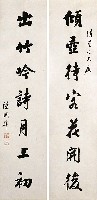 傾壺待客花開後
出竹吟詩月上初